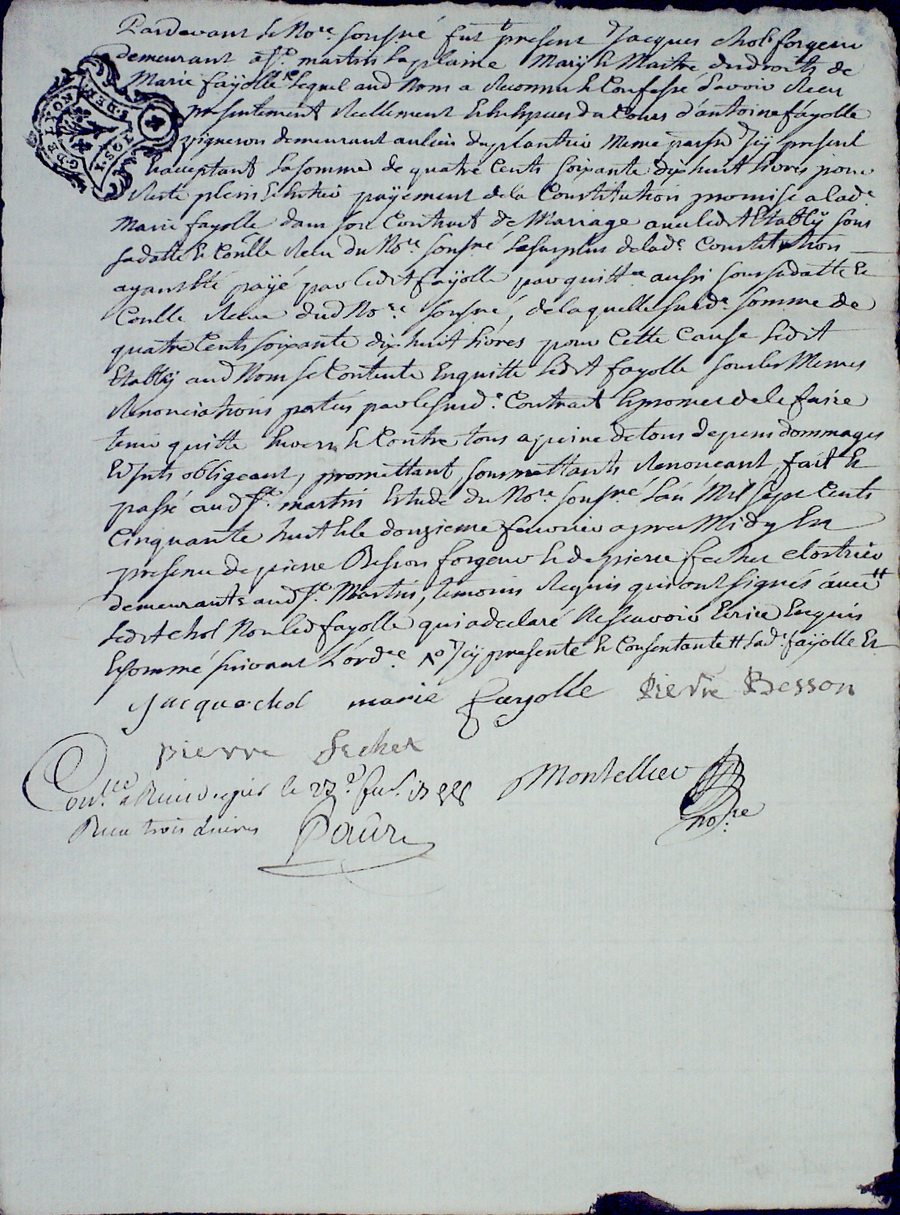 Pardevant le No.re sousné fut présent Jacques chol forgeur
demeurant a St. martin la plaine Mary & Maitre des droits de
Marie fayolle Lequel aud Nom a Reconnu & Confessé d'avoir Reçu
présentement Reellement & En Especes du Cours d'antoine fayolle
vigneron demeurant au lieu du plantrie Meme parse Jcy present
& acceptant La somme de quatre Cents soixante dix huit livres pour
Reste plein & Entier payement de la Constitution promise a lade.
Marie fayolle dans son Contrat de Mariage avec ledit Etably sous
sa datte & Conllé Recu du No.re sousné Le surplus de lade Constitution
ayant Eté payé par ledit fayolle par quittce aussi sous sa datte &
Conllé Recue dud No.re sousné, de laquelle susde. somme de
quatre Cents soixante dix huit livres pour Cette Cause Ledit
Etably aud Nom se Contente En quitte Ledit fayolle sous les Memes
Renonciations portées par le susd. Contrat & promet de le faire
tenir quitte Envers & Contre tous a peine de tous depens dommages
Et Jnts obligeant, promettant, soumettants Renonceant, fait &
passé aud St. martin Etude du No.re sousné L'an Mil sept Cents
Cinquante huit & le douzieme fevrier apres Midy En
presence de pierre Besson forgeur & de pierre fecher cloutrier
demeurants aud St. Martin, temoins Requis qui ont signés avec
Ledit chol Non led fayolle qui a declaré Ne scavoir Ecrire Enquis
& sommé suivant L'ord.ce Jcy presente & Consentante Lad. fayolle
Jacque chol marie fayolle Pierre Besson
pierre fecher
Conllé a Rivedegier le 22e. fev.
Recu trois livres
Montellier
no.re